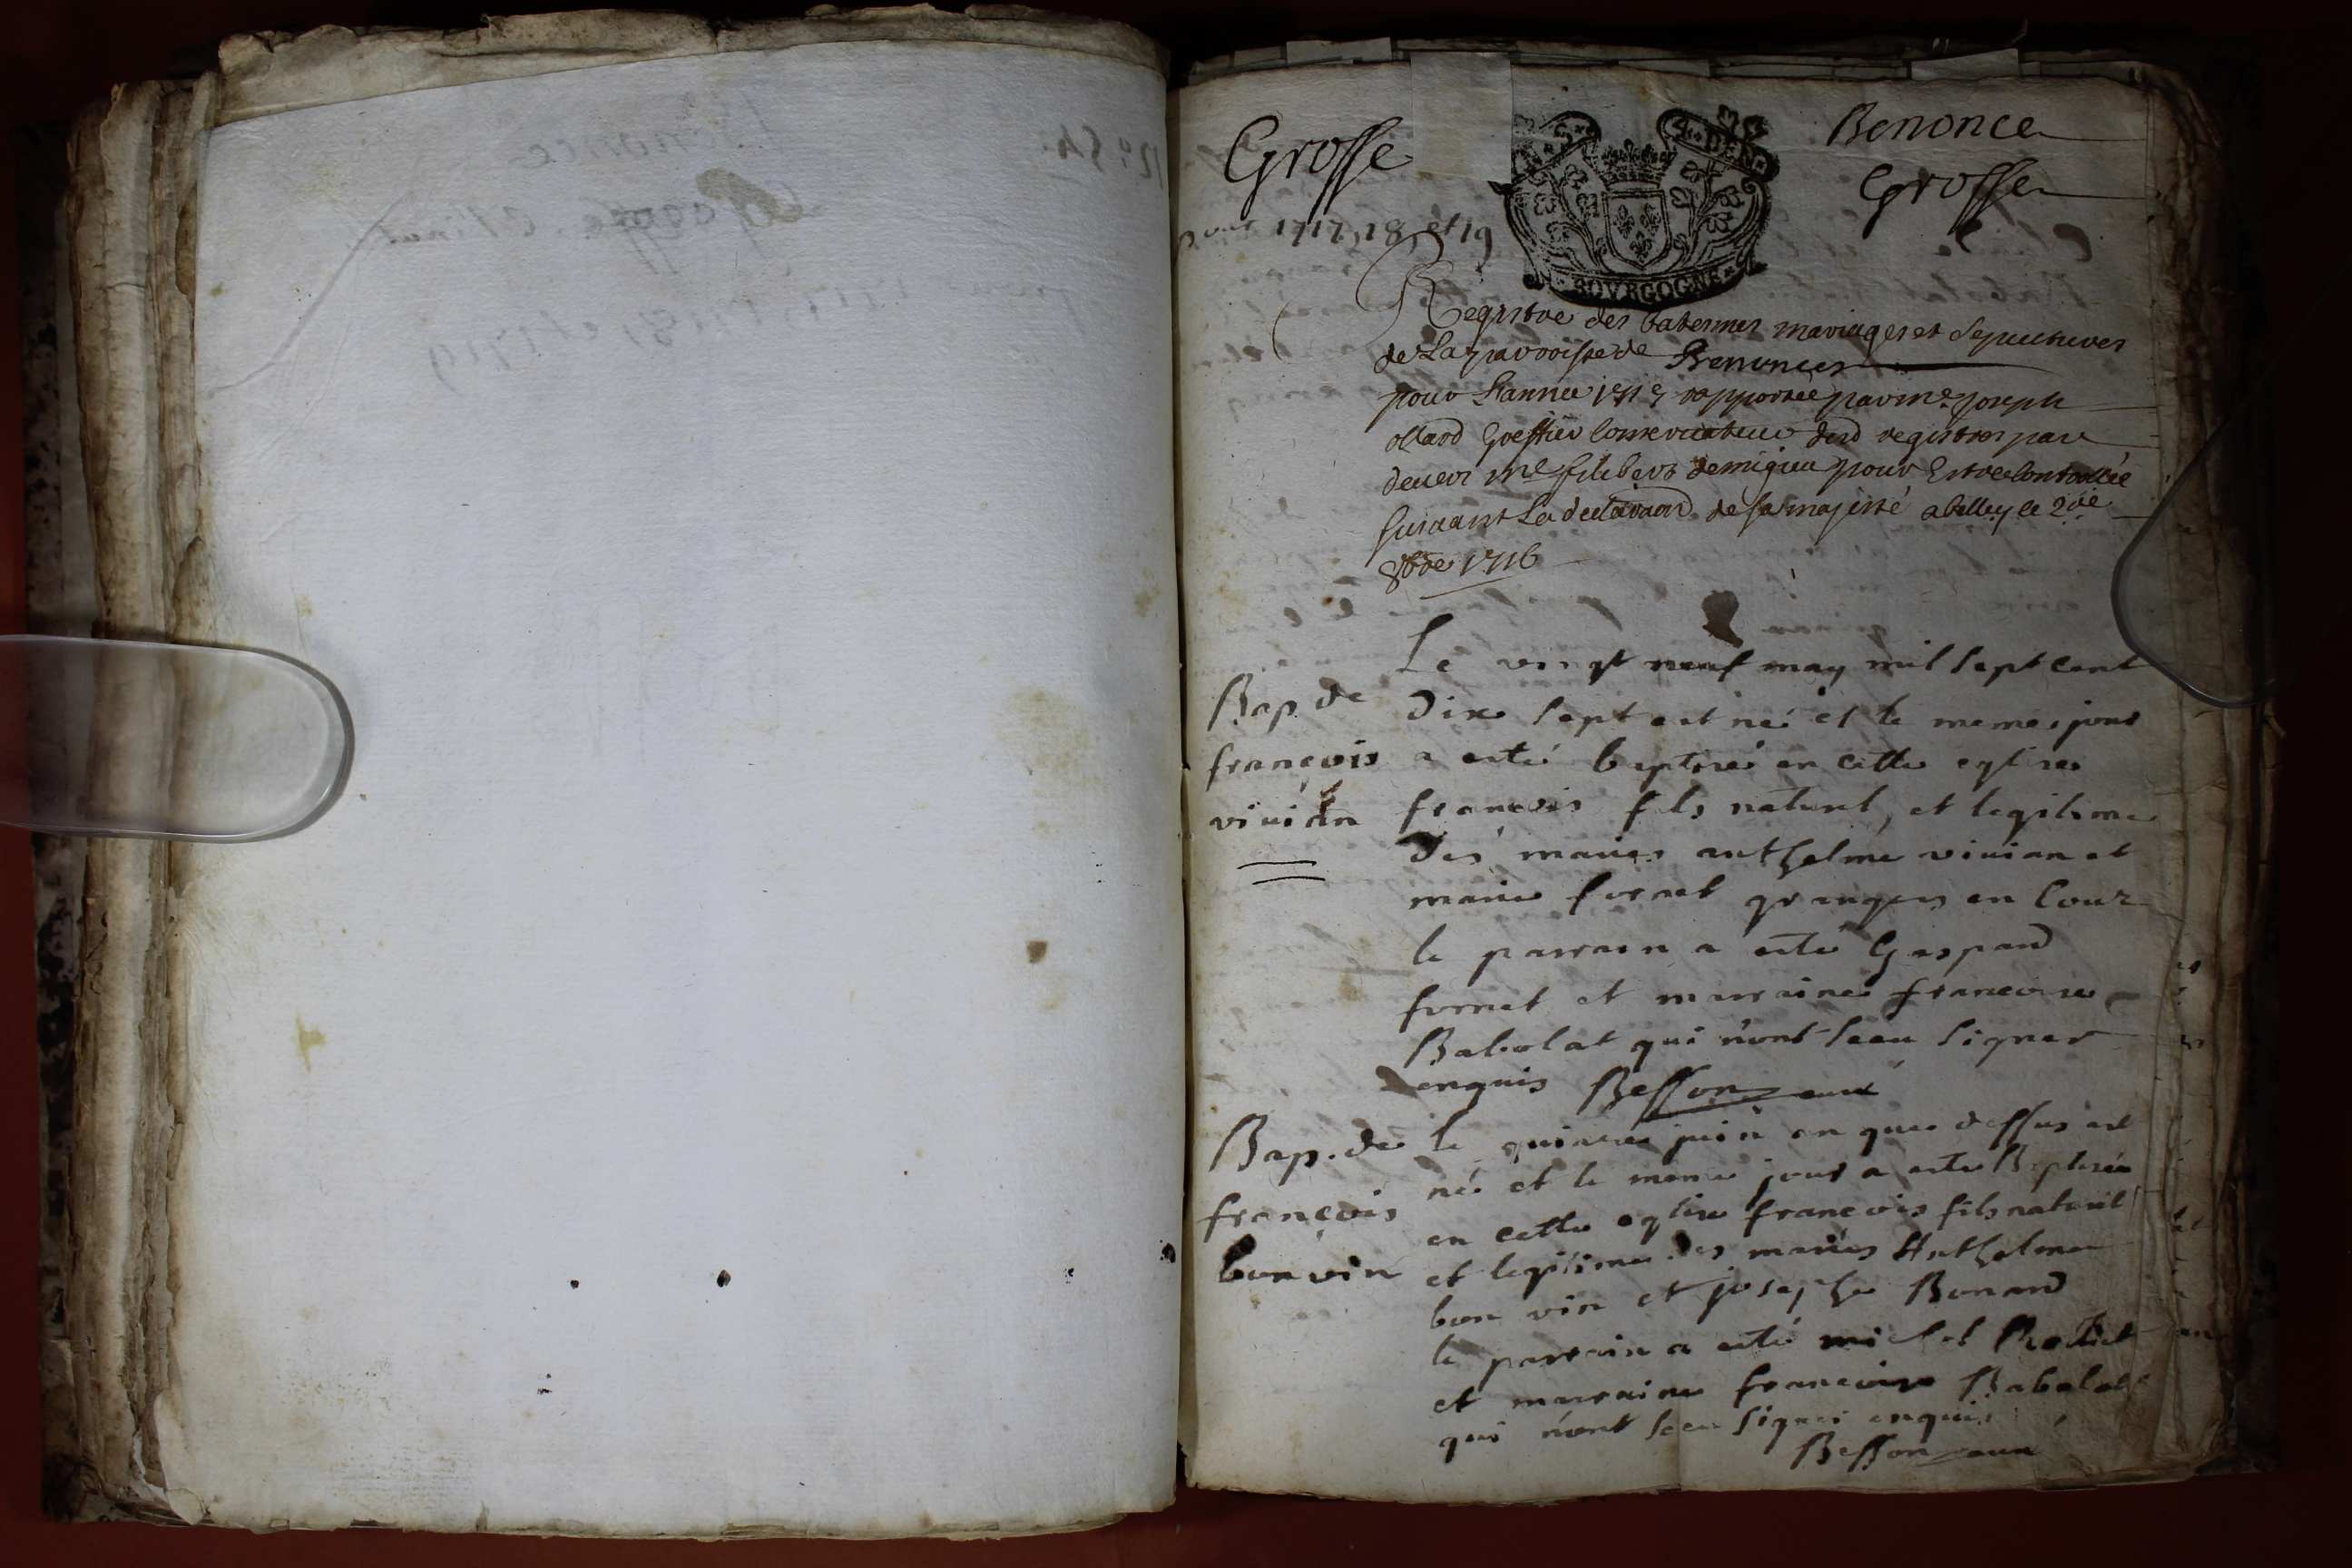 Grosse
pour 1717, 18, et 19
Benonce
Grosse
4 DEN
BOVRGOGNE
Registre des batesmes mariages et sepultures
de La parroisse de Benonces
pour L'annee 1717 rapportée par me joseph
ollard Greffier Conservateur desd registres par
devers me filibert demigieu pour Estre Controllée
suivant La declaraon de sa majesté a belley le
8bre 1716
Bap. de
françois
viuian
Le vingt neuf may mil sept cent
Dix sept est né et le meme jour
a esté baptisé en cette eglise
francois fils naturel, et legitime
des mariés anthelme viuian et
marie fornet grangers en Cour
le parrain a esté Gaspard
fornet et marraine francoise
Babolat qui n'ont sceu signer
enquis Besson curé
Bap. de
françois
bon vin
le quinze juin an que dessus est
né et le meme jour a esté Baptisé
en cette eglise francois fils naturel
et legitime des mariés Anthelme
bon vin et josephe Bonard
le parrain a esté michel
et marraine francoise Babolat
qui n'ont sceu signer enquis
Besson curé